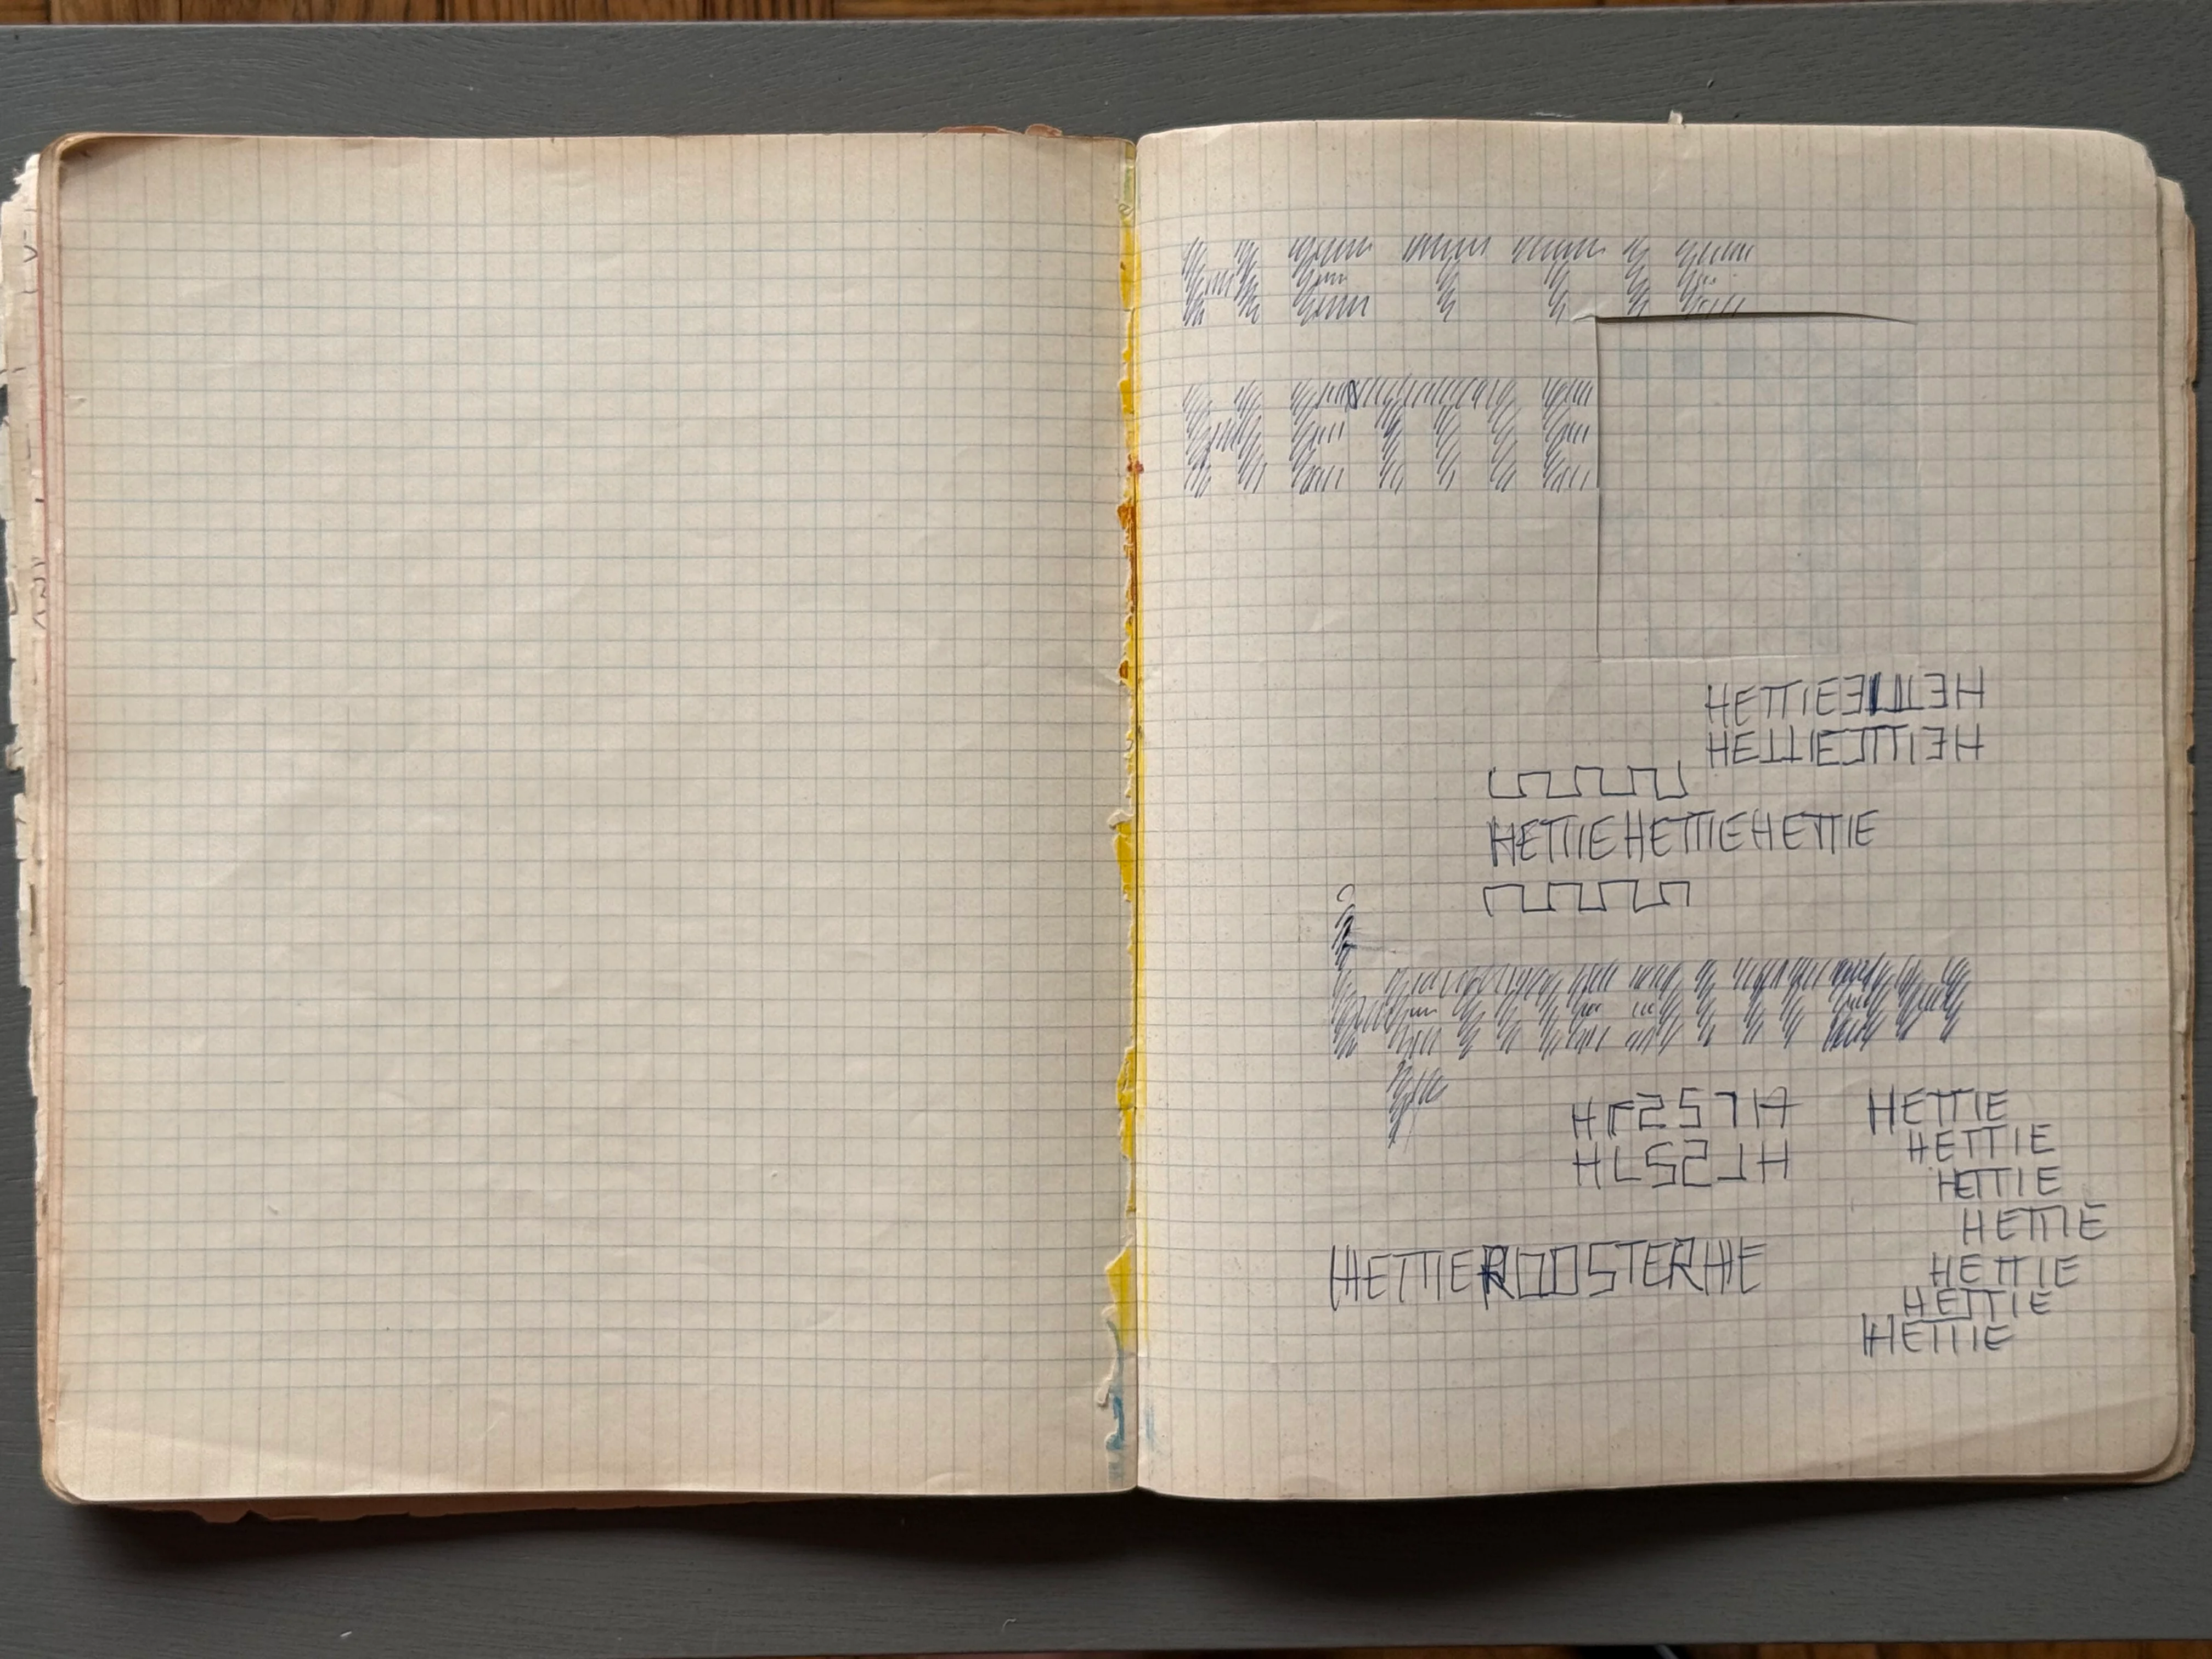 HETTIE
HETTIE
HETTIEƎITTƎH
HETTIEƎITTƎH
HETTIEHETTIEHETTIE
HETTIE
HETTIE
HETTIE
HETTIE
HETTIE
HETTIE
HETTIE
HETTIEROOSTERHE